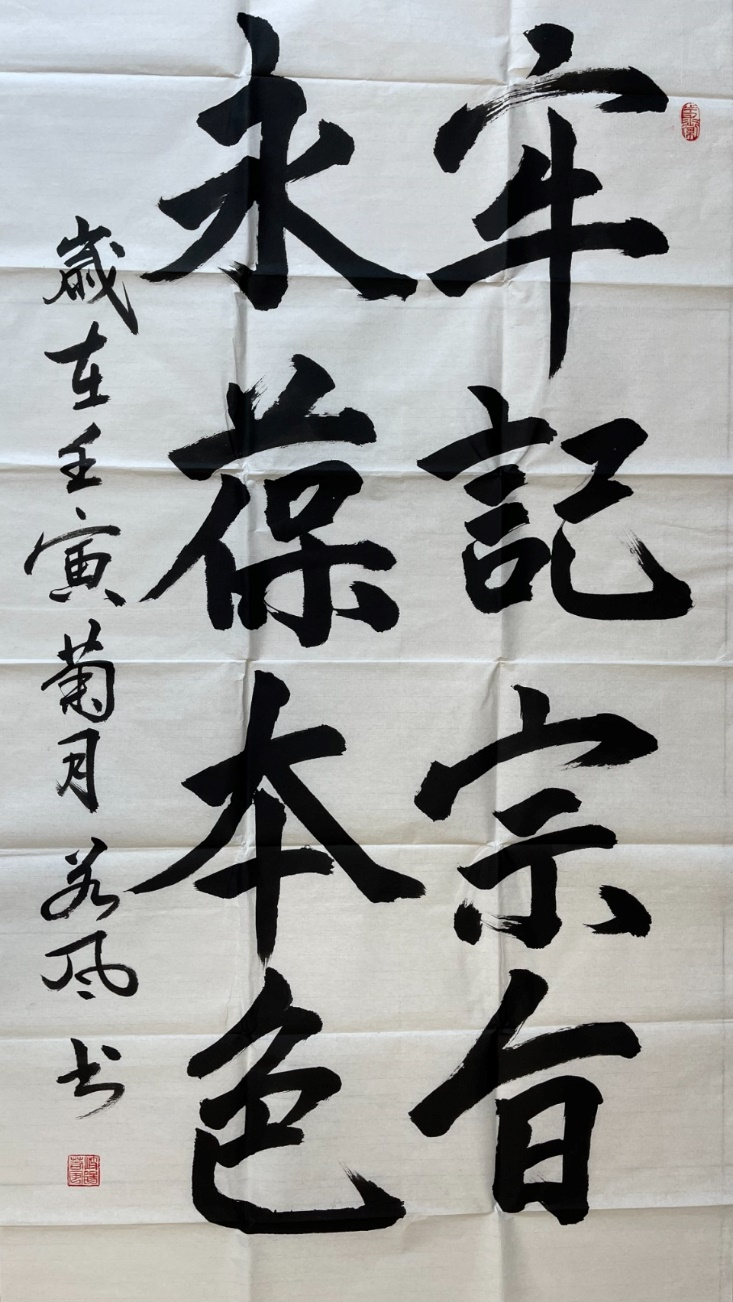 牢記宗旨
永葆本色
歲在壬寅菊月若风书